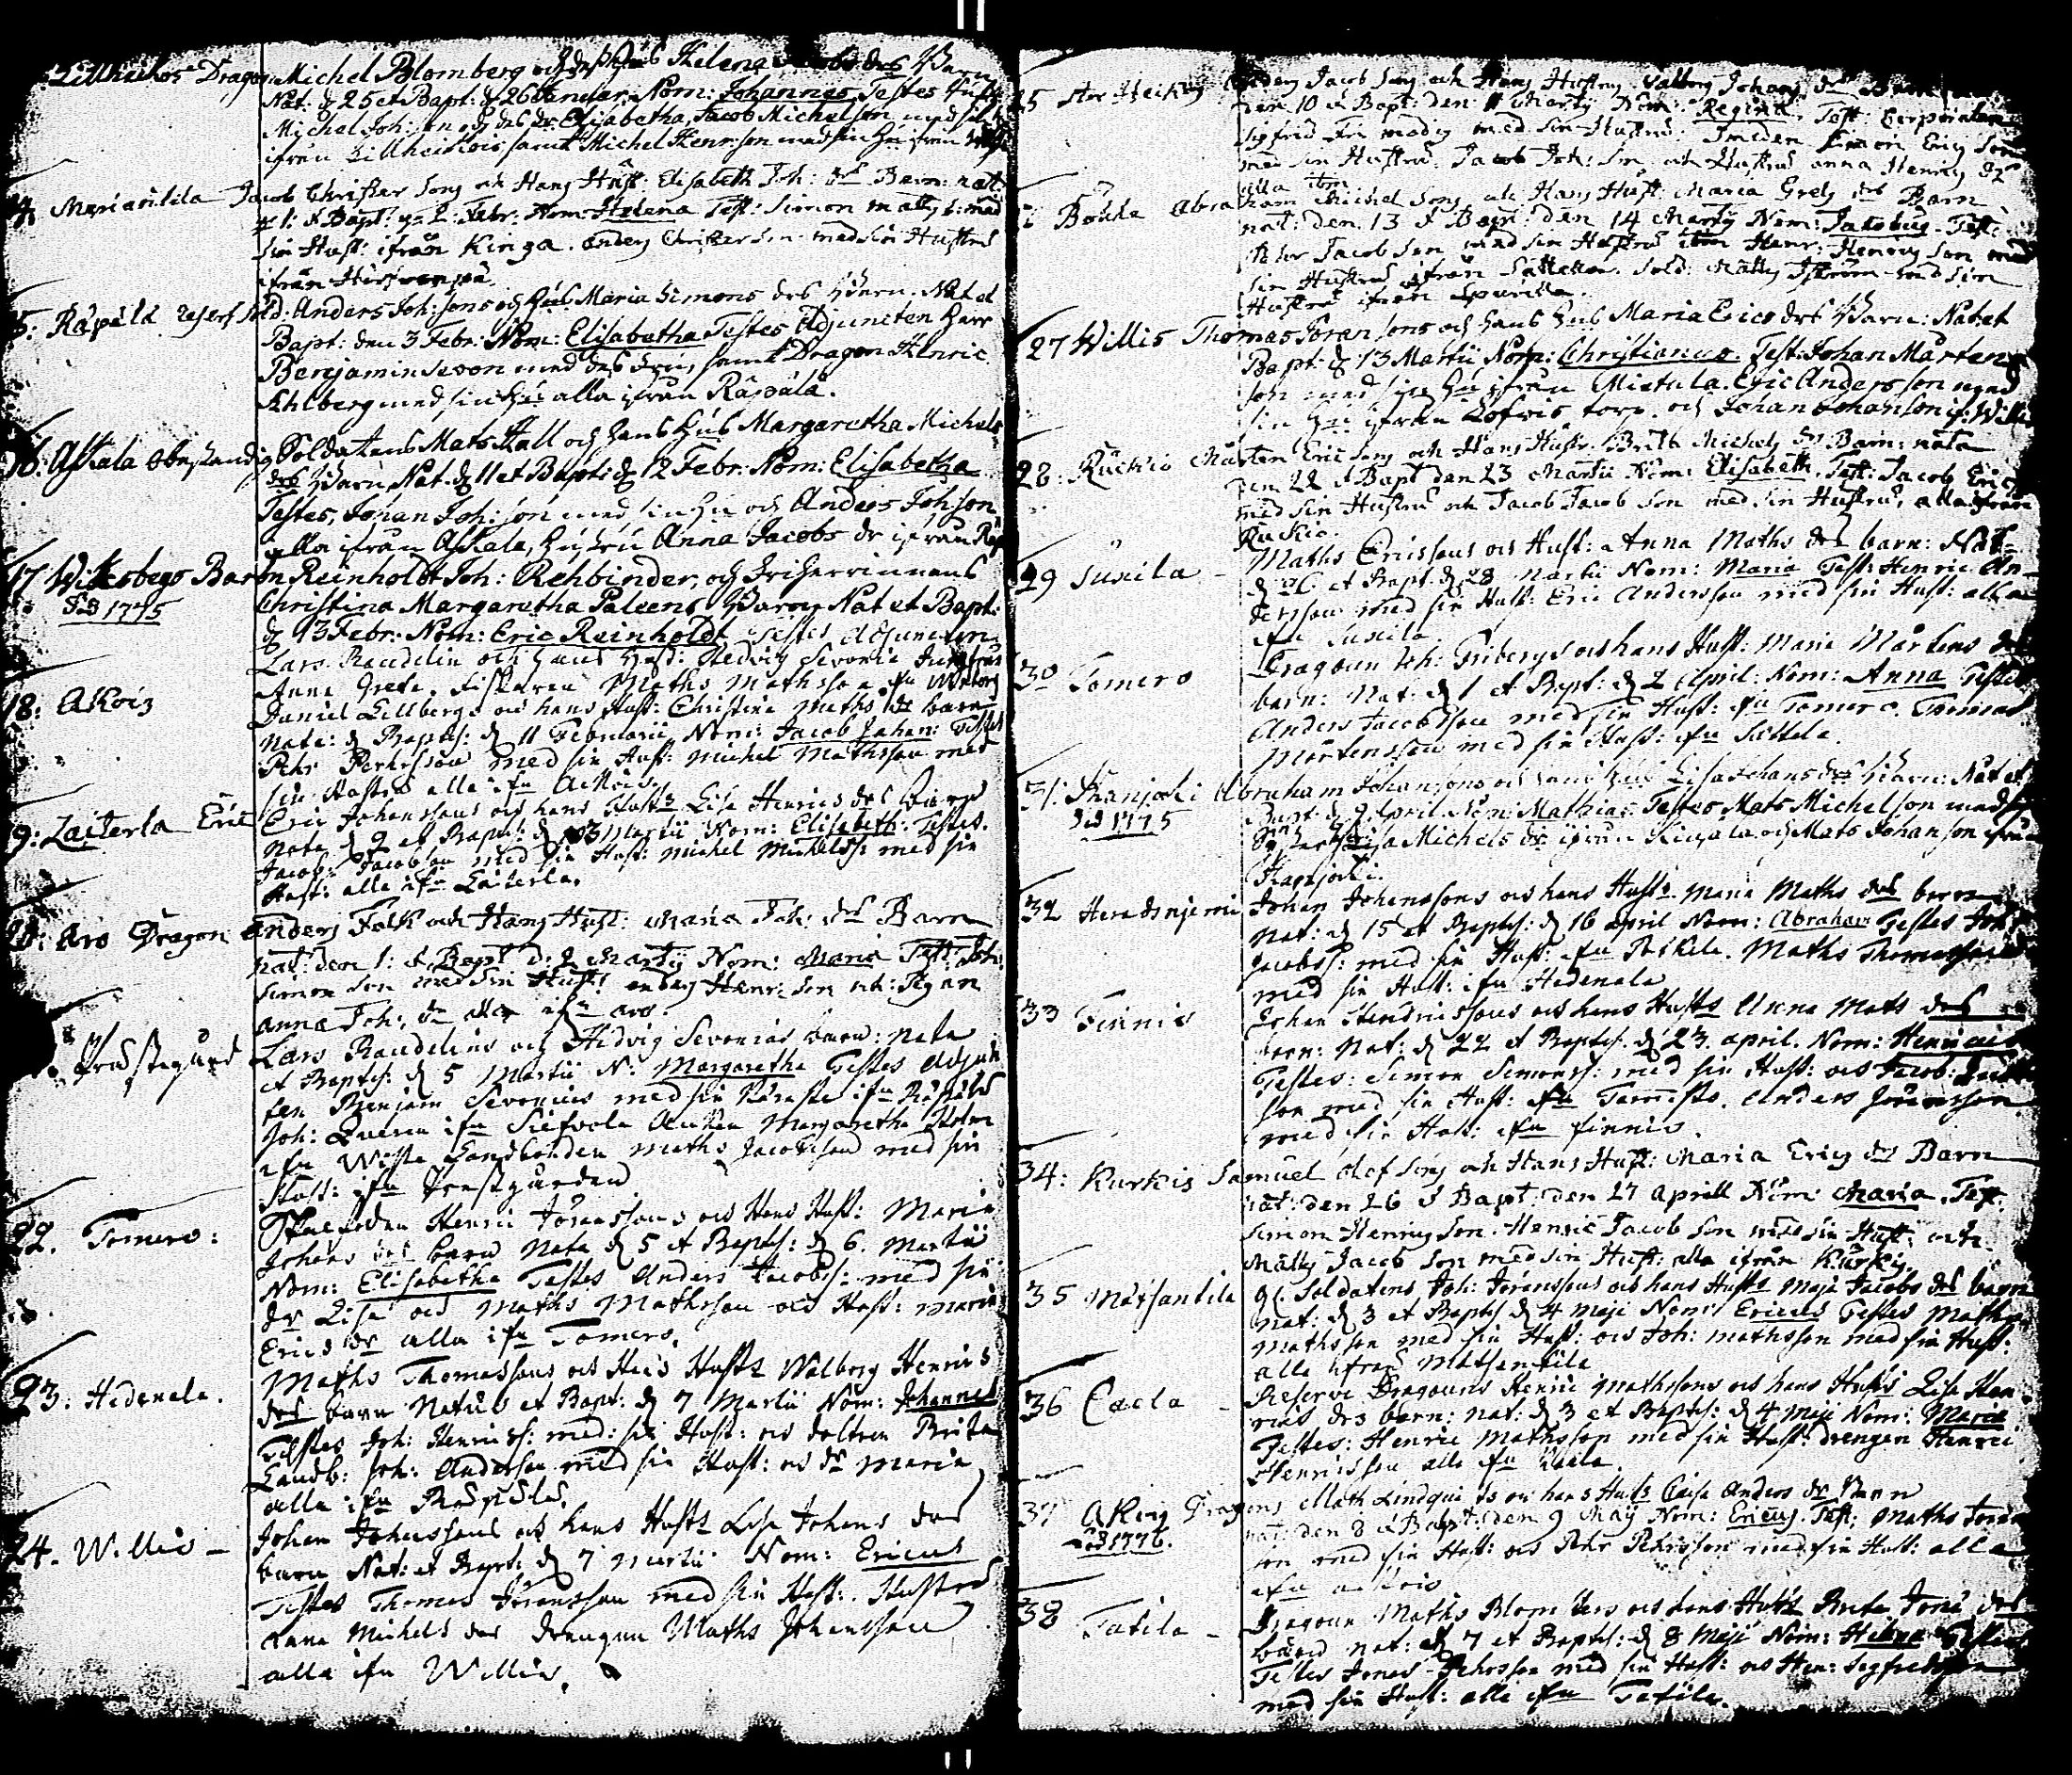 Lillheikois Dragon Michel Blomberg och des Hus Helena Jacobs dr Barn
Nat: d 25 et Bapt: d 26 Januar. Nom: Johannes Testes
Michel Joh:son och des dr Elisabetha, Jacob Michelson med sin
ifrån Lillheikois samt Michel Henrson med sin Hu ifrån
14 Mariantila Jacob Christer Sons och Hans Hust: Elisabeth Joh: dr Barn: nat:
d 1: & Bapt: d 2: Febr: Nom: Helena Test: Simon Matts s: med
sin Hust: ifrån Kinga. anders Christer son med sin Hustru
ifrån Hirvenpä.
15: Räpälä reserf Sold: Anders Joh:sons och Hus Maria Simons drs Barn. Nat et
Bapt: den 3 Febr: Nom: Elisabetha Testes Adjuncten Herr
Benjamin Sevon med des Fru, samt Dragon Henric
Ahlberg med sin Hu alla ifrån Räpälä.
16: Askala obestandig Soldatens Mats Stall och hans Hus Margaretha Michels
drs Barn Nat. d 11 et Bapt: d 12 Febr. Nom: Elisabetha
Testes, Johan Joh:son med sin Hu och Anders Johson
alla ifrån Askala, Hustru Anna Jacobs dr ifrån
17 Wikesbego Baron Reinholdt Joh: Rehbinder, och Friherrinnans
Fid 1775 Christina Margaretha Paleens Barn Nat et Bapt:
d 13 Febr: Nom: Eric Reinholdt Testes Adjuncten
Lars Randelin och Hans Husf: Hedvig Sevonia Jungfru
Anna Greta. Fiskaren Maths Mathsson ifn
18: Akois Daniel Lillbergs och hans Hust: Christina Maths dr barn
nata: d Bapts: d 11 Februarii Nom: Jacob Johan: Testes
Pehr Pehrsson med sin Hust: Michel Mathsson med
sin Hustru alla ifn Ackois.
9: Laiterla Eric Eric Johanssons och hans Husts Lisa Henrics drs Barn
nata d 2 et Bapts: d 3 Martii Nom: Elisabeth: Testes.
Jacob Jacobson med sin Hust: Michel Michelss: med sin
Hust: alla ifn Laiterla.
20: Aro Dragon Anders Falk och Hans Hust: Maria Joh: dr Barn
nat: den 1: & Bapt d: 2 Marty Nom: Maria Test: Joh:
Simon Son med sin Hust: anders Henr: son och: Pigan
anna Joh: dr alla ifn aro.
Prästegård Lars Randelins och Hedvig Sevonias barn: nata
et Bapts: d 5 Martii N: Margaretha Testes Adjunk
ten Benjam Sevonius med sin Käresta ifn Räpälä
Joh: Queren ifn Siefvola Enkan Margaretha Holm
ifn Wista Landbonden Maths Jacobsson med sin
Hust: ifn Prestgården
22. Tomero: Henric Jöranssons och Hans Hust: Maria
Johans drs barn Nata d 5 et Bapts: d 6. Martii
Nom: Elisabetha Testes Anders Jacobs: med sin
dr Lisa och Maths Mathsson och Hust: Maria
Erics dr alla ifn Tomero.
23: Hedenala. Maths Thomassons och Hans Husts Walborg Henrics
drs barn Natus et Bapt: d 7 Martii Nom: Johannes
Testes Joh: Henricss: med: sin Hust: och dottren Brita
Landb: Joh: Anderson med sin Hust: och dr Maria
alla ifn Räpälä.
24. Willio - Johan Johanssons och hans Husts Lisa Johans drs
barn Nat: et Bapt: d 7 Martii Nom: Ericus
Testes Thomas Jöransson med sin Hust: Hustru
Anna Michels dr drengen Maths Johansson
alla ifn Willio.
25 Anders Jacob Sons och Hans Hustru Valborg Johans dr Barn
den 10 & Bapt: den 11 Marty Nom: Regina, Test: Corporalen
Sigfrid Frimodig med sin Hustru. Smeden Simon Erics Son
med sin Hustru Jacob Joh: Son och Hustru anna Henrics dr
alla
Böhle Abraham Michel Sons, och Hans Hust: Maria Grels drs Barn
nat: den 13 & Bapt: den 14 Marty Nom: Jacobus. Test:
Jacob Son med sin Hustru Henr: Henrics son med
sin Hustru ifrån Sattela. Sold: Matts med sin
Hustru ifrån Spurila.
27 Willis Thomas Jöransons och hans Hus Maria Erics drs Barn: Nat et
Bapt: d 13 Martii Nom: Christianus. Test: Johan Mårtens
son med sin Hu ifrån Mietula. Eric Andersson med
sin Hu ifrån Lofvis torp. och Johan Johanson if: Willi
28: Ruckio Mårten Erics Sons och Hans Hustr. Brita Michels dr Barn: nata
den 22 & Bapt den 23 Martii Nom: Elisabeth. Test: Jacob Erics
med sin Hustru och Jacob Jacob Son med sin Hustru, alla ifrån
Ruckio.
29 Juncila - Maths Ericssons och Hust: Anna Maths drs barn: Nat
d 26 et Bapt. d 28 Martii Nom: Maria Test: Henric An-
dersson med sin Hust: Eric Andersson med sin Hust: alla
ifn Juncila.
30 Tomero Dragoun Joh: Fribergs och hans Hust: Maria Mårtens dr
barn: Nat: d 1 et Bapt: d 2 April: Nom: Anna Testes
Anders Jacobsson med sin Hust: ifn Tomero. Thomas
Mårtensson med sin Hust: ifn Sattela.
31: Abraham Johansons och hans Hus Lisa Johans drs Barn: Nat et
Fid 1775 Bapt: d 9 April Nom: Mathias. Testes Mats Michelson med
Syster Lisa Michels dr ifrån och Mats Johanson ifrån
32 Heradsnjemi Johan Johanssons och hans Husts. Maria Maths drs barn
Nat: d 15 et Bapts: d 16 April Nom: Abraham Testes Joh:
Jacobss: med sin Hust: ifn Paskila. Maths Thomasson
med sin Hust: ifn Hedenala
33 Finnis Johan Hendricssons och hans Husts Anna Mats drs
barn: Nat: d 22 et Bapts: d 23. april. Nom: Henricus
Testes: Simon Simonss: med sin Hust: och Jacob:
son med sin Hust: ifn Tammisto. Anders Jöransson
med sin Hust: ifn finnis.
34: Kurkis Samuel Olof Sons och Hans Hust: Maria Erics dr Barn
nat: den 26 & Bapt: den 27 Aprill Nom: Maria. Test:
Simon Henrics Son. Henric Jacob Son med sin Hust: och
Matts Jacob Son med sin Hust: alla ifrån Kurky.
35 Matsantila gl. Soldatens, Joh: Jöranssons och hans Husts Maja Jacobs drs barn
Nat: d 3 et Bapts d 4 Maji Nom: Ericus Testes Maths
Mathsson med sin Hust: och Joh: Mathsson med sin Hust:
alla ifrån Matsentila
36 Caela - Reserve Dragouns Henric Mathssons och hans Husts Lisa Hen-
rics drs barn: nat: d 3 et Bapts: d 4 Maji Nom: Maria
Testes: Henric Mathsson med sin Hust: drengen Henric
Henricsson alla ifn Caela.
37 Akois Dragons Math Lindquists och hans Husts Caisa Anders dr Barn
Fid 1776. nat: den 8 & Bapt: den 9 Maij Nom: Ericus. Test: Maths Jöran
son med sin Hust: och Pehr Pehrsson med sin Hust: alla
ifn ackois
38 Tatila - Dragoun Maths Blom och hans Husts Brita Jöns drs
barn nat: d 7 et Bapts: d 8 Maji Nom: Helena Testes
Testes Jonas Pehrsson med sin Hust: och Hen: Sigfredsson
med sin Hust: alla ifn Tatila.